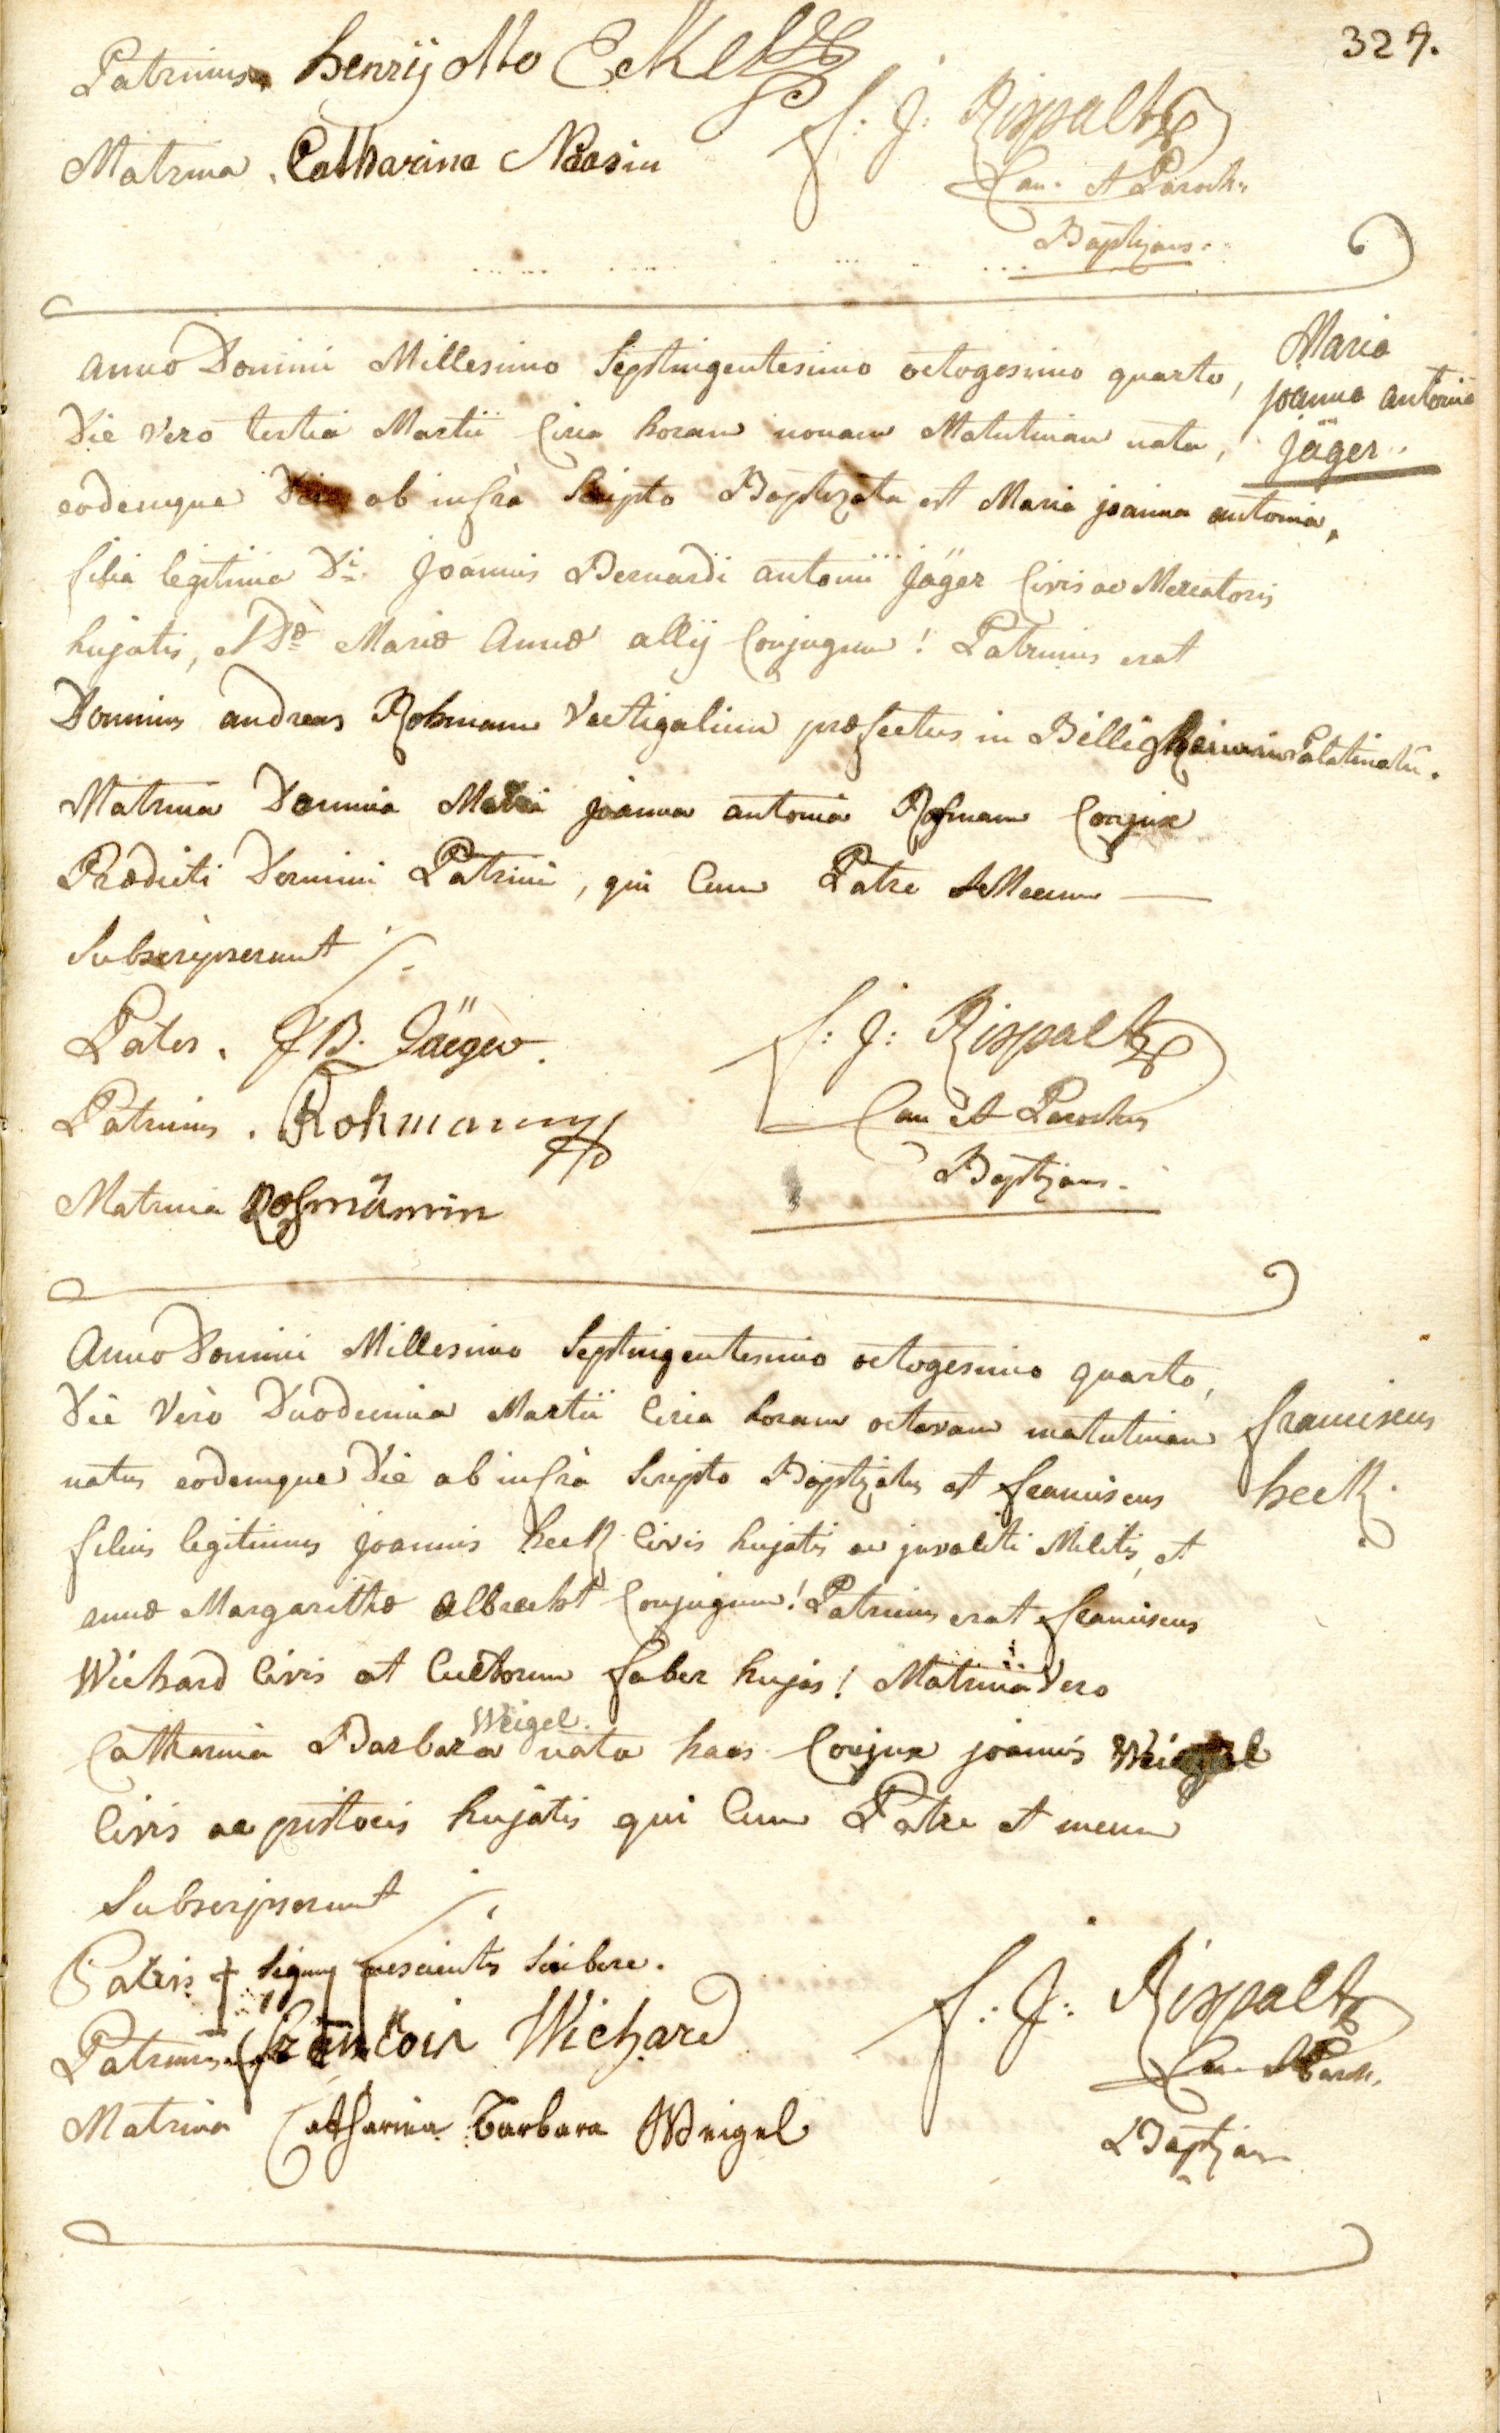 327.
Patrinus henrij otto Eckel
Matrina . Catharina Naasin
f: J: Rispalt
Can. et Paroch:
Baptizans.
Maria
joanna antonia
Jäger
anno Domini Millesimo Septuingentesimo octogesimo quarto,
Die vero tertia Martii Circa horam nonam Matutinam nata,
eodemque Die ab infrà Scripto Baptizata est Maria joanna antonia,
filia legitima Di. Joannis Bernardi antonii Jäger Civis ac Mercatoris
hujatis, et Dæ Mariæ Annæ allij Conjugum! Patrinus erat
Dominus andreas Rohmann Vectigalium præfectus in Billigheim in Palatinatu.
Matrina Domina Maria joanna antonia Rohmann Conjux
Prædicti Domini Patrini, qui Cum Patre et Mecum —
Subscripserunt /.
Pater . J B. Jäeger.
Patrinus . Rohmann
Matrina Rohmännin
f: J: Rispalt
Can et Parochus
Baptizans.
Anno Domini Millesimo Septuingentesimo octogesimo quarto,
Die Verò Duodecima Martii Circa horam octavam matutinam
natus eodemque Die ab infrà Scripto Baptizatus est franciscus
franciscus
heck.
filius legitimus joannis heck Civis hujatis ac invaliti Militis, et
annæ Margarithæ Albrecht Conjugum! Patrinus erat franciscus
Wichard Civis at Cultorum faber hujas! Matrina Vero
Catharina Barbara Weigel. nata haas Conjux joannis Weigel
Civis ac pistoris hujatis qui Cum Patre et mecum
Subscripserunt /.
Patris + Signum nescientis Scribere.
Patrinus françois Wichard
Matrina Catharina Barbara Weigel
f: J: Rispalt
Can et Paroch.
Baptizans